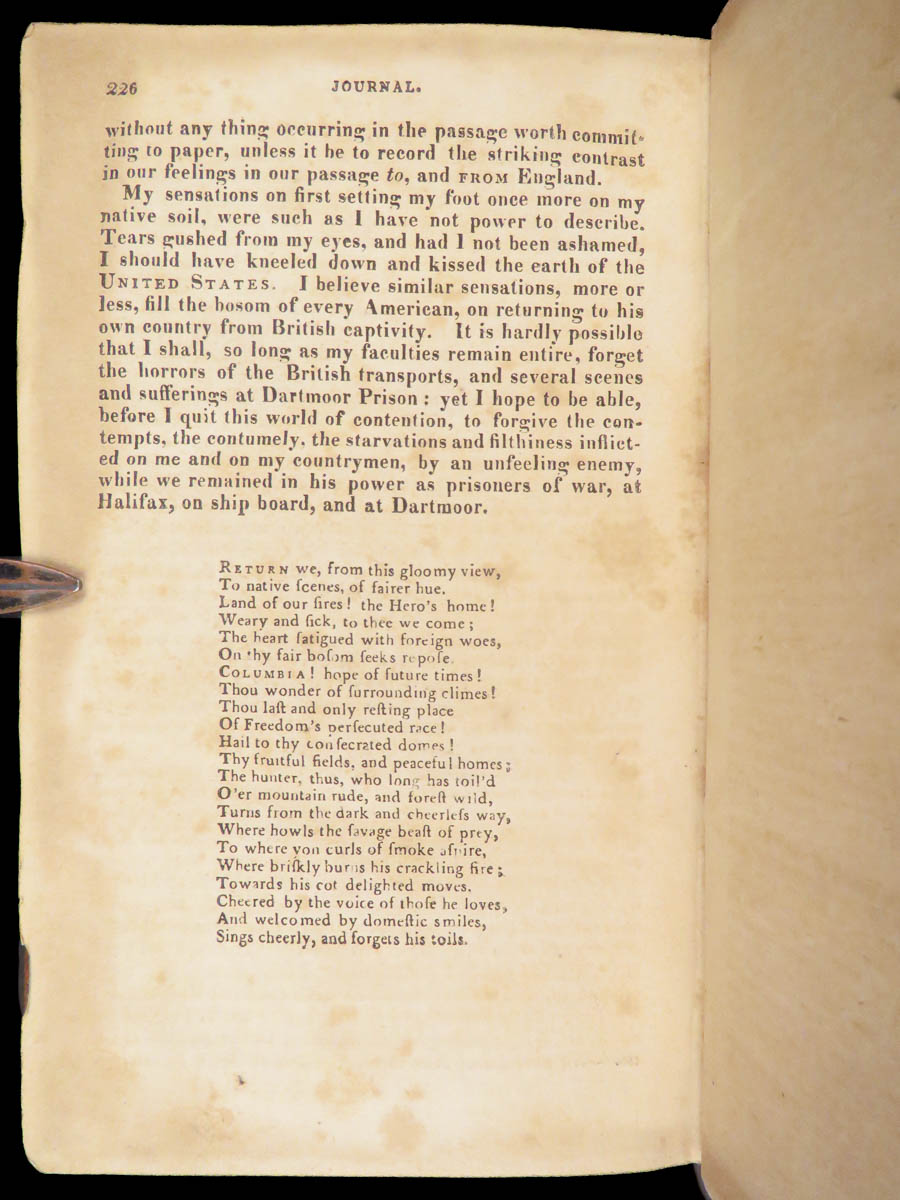 226 JOURNAL.
without any thing occurring in the passage worth commit-
ting to paper, unless it be to record the striking contrast
in our feelings in our passage to, and FROM England.
My sensations on first setting my foot once more on my
native soil, were such as I have not power to describe.
Tears gushed from my eyes, and had I not been ashamed,
I should have kneeled down and kissed the earth of the
UNITED STATES. I believe similar sensations, more or
less, fill the bosom of every American, on returning to his
own country from British captivity. It is hardly possible
that I shall, so long as my faculties remain entire, forget
the horrors of the British transports, and several scenes
and sufferings at Dartmoor Prison : yet I hope to be able,
before I quit this world of contention, to forgive the con-
tempts, the contumely, the starvations and filthiness inflict-
ed on me and on my countrymen, by an unfeeling enemy,
while we remained in his power as prisoners of war, at
Halifax, on ship board, and at Dartmoor.
RETURN we, from this gloomy view,
To native ſcenes, of fairer hue.
Land of our ſires! the Hero's home!
Weary and ſick, to thee we come;
The heart fatigued with foreign woes,
On thy fair boſom ſeeks repoſe.
COLUMBIA! hope of future times!
Thou wonder of ſurrounding climes!
Thou laſt and only reſting place
Of Freedom's perſecuted race!
Hail to thy conſecrated domes!
Thy fruitful fields, and peaceful homes;
The hunter, thus, who long has toil'd
O'er mountain rude, and foreſt wild,
Turns from the dark and cheerleſs way,
Where howls the ſavage beaſt of prey,
To where yon curls of ſmoke aſpire,
Where briſkly burns his crackling fire;
Towards his cot delighted moves.
Cheered by the voice of thoſe he loves,
And welcomed by domeſtic smiles,
Sings cheerly, and forgets his toils.